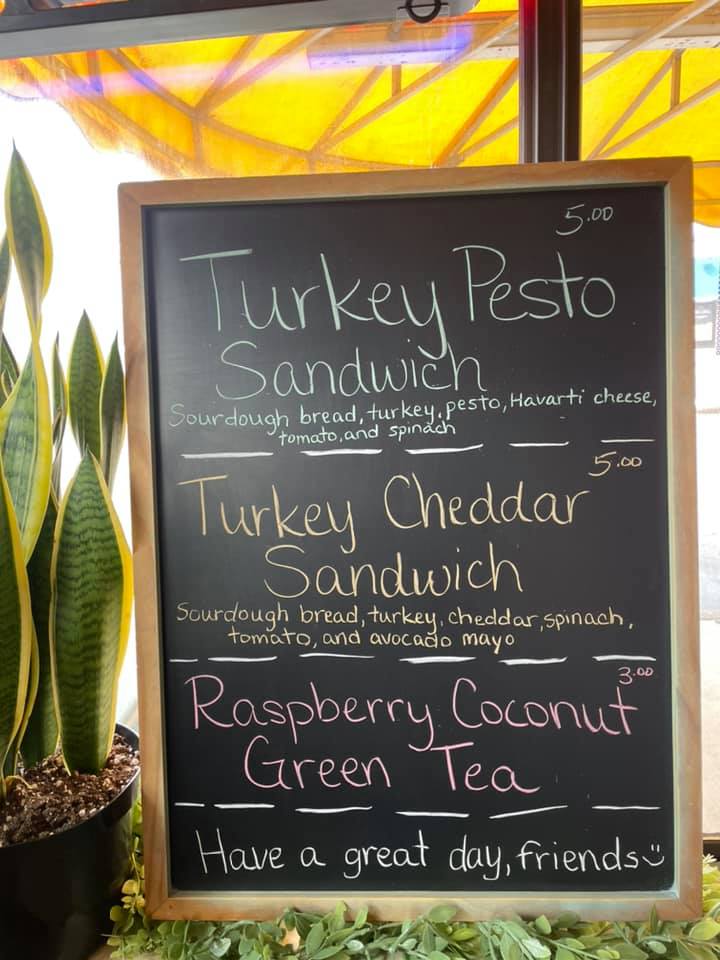 5.00
Turkey Pesto
Sandwich
Sourdough bread, turkey, pesto, Havarti cheese,
tomato, and spinach
5.00
Turkey Cheddar
Sandwich
Sourdough bread, turkey, cheddar, spinach,
tomato, and avocado mayo
3.00
Raspberry Coconut
Green Tea
Have a great day, friends